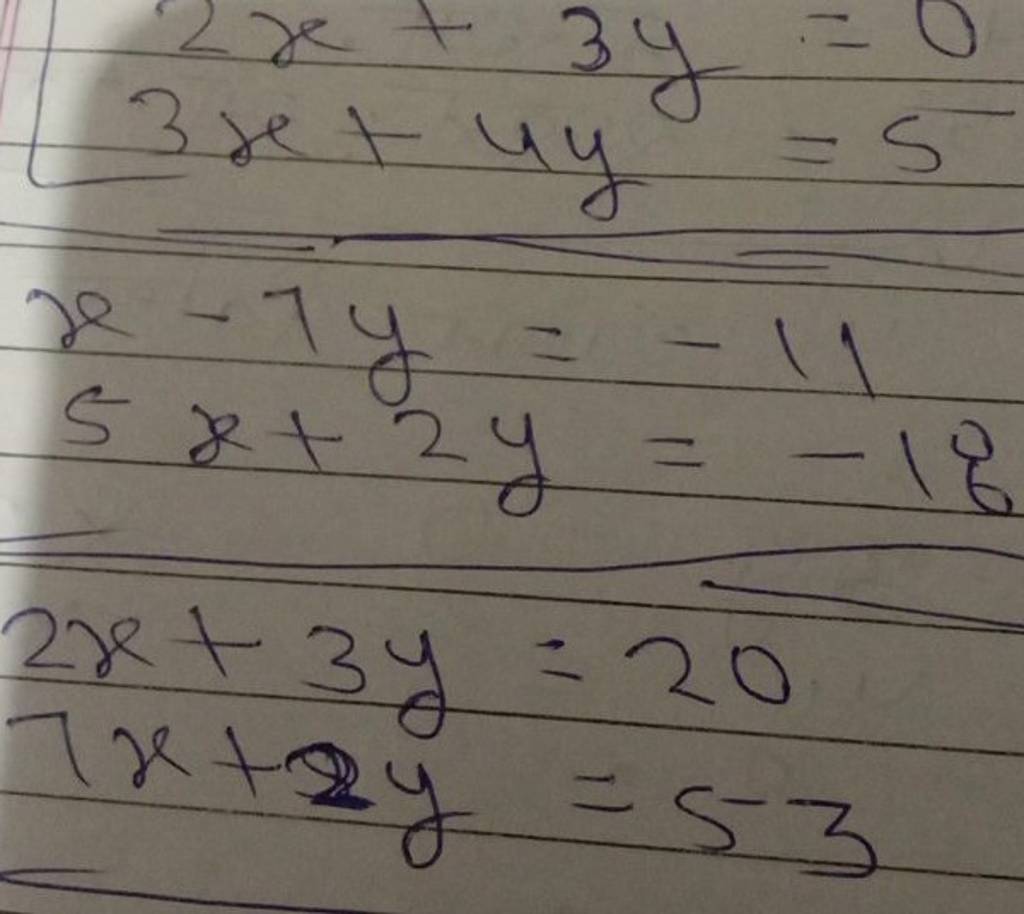 2x + 3y = 0
3x + 4y = 5
x - 7y = - 11
5x + 2y = - 18
2x + 3y = 20
7x + 2y = 53